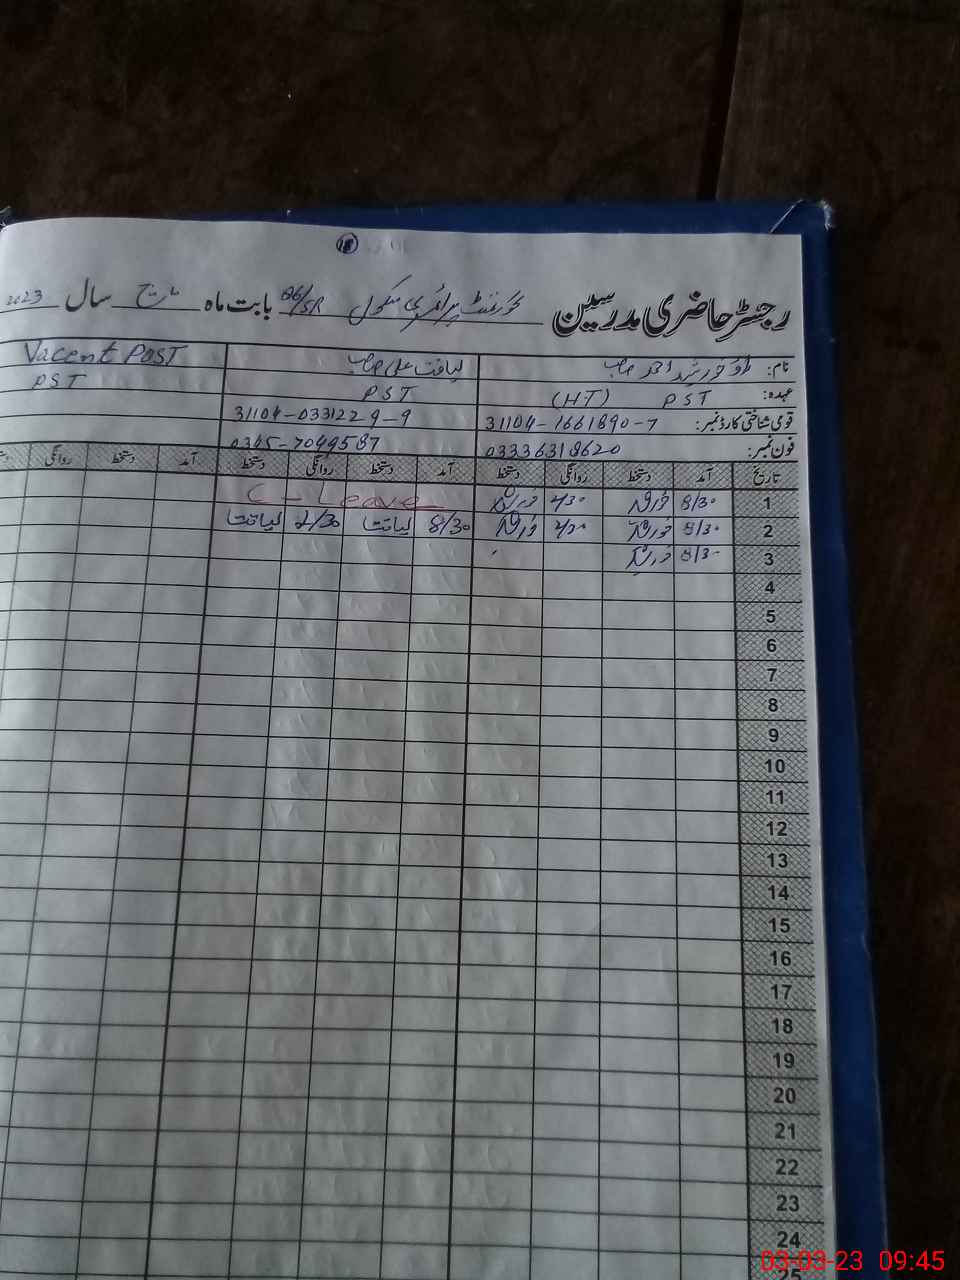 18
رجسٹر حاضری مدرسین گورنمنٹ پرائمری سکول 86/5R بابت ماہ مارچ سال 2023
نام: خورشید احمد صاحب لیاقت علی صاحب Vacent Post
عہدہ: PST (HT) PST PST
قومی شناختی کارڈ نمبر: 31104-1661890-7 31104-0331229-9
فون نمبر: 03336318620 0345-7049587
تاریخ آمد دستخط روانگی دستخط آمد دستخط روانگی دستخط آمد دستخط روانگی
1 8/30 خورشید 2/30 خورشید C-Leave
2 8/30 خورشید 2/30 خورشید 8/30 لیاقت 2/30 لیاقت
3 8/30 خورشید
4
5
6
7
8
9
10
11
12
13
14
15
16
17
18
19
20
21
22
23
24
25
03-03-23 09:45